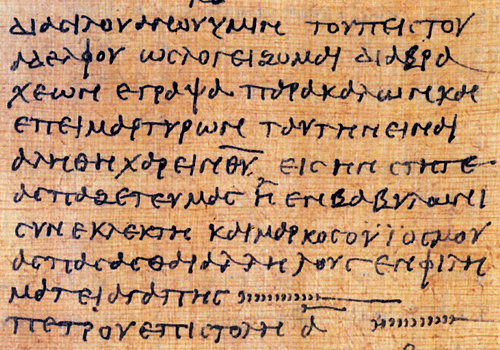 ΔΙΑϹΙΛΟΥΑΝΟΥΥΜΙΝ ΤΟΥΠΕΙϹΤΟΥ
ΑΔΕΛΦΟΥ ΩϹΛΟΓΕΙΖΟΜΑΙ ΔΙΑΒΡΑ
ΧΕΩΝ ΕΓΡΑΨΑ ΠΑΡΑΚΑΛΩΝΚΑΙ
ΕΠΕΙΜΑΡΤΥΡΩΝ ΤΑΥΤΗΝΕΙΝΑΙ
ΑΛΗΘΗ ΧΑΡΕΙΝΘ̅Υ̅ ΕΙϹ ΗΝ ϹΤΗΤΕ
ΑϹΠΑΖΕΤΕΥΜΑϹ Η ΕΝΒΑΒΥΛΩΝΙ
ϹΥΝΕΚΛΕΚΤΗ ΚΑΙΜΑΡΚΟϹΟΥΪΟϹΜΟΥ
ΑϹΠΑϹΑϹΘΑΙΑΛΛΗΛΟΥϹ ΕΝΦΙΛΗ
ΜΑΤΕΙΑΓΑΠΗϹ
ΠΕΤΡΟΥΕΠΙϹΤΟΛΗ Α̅